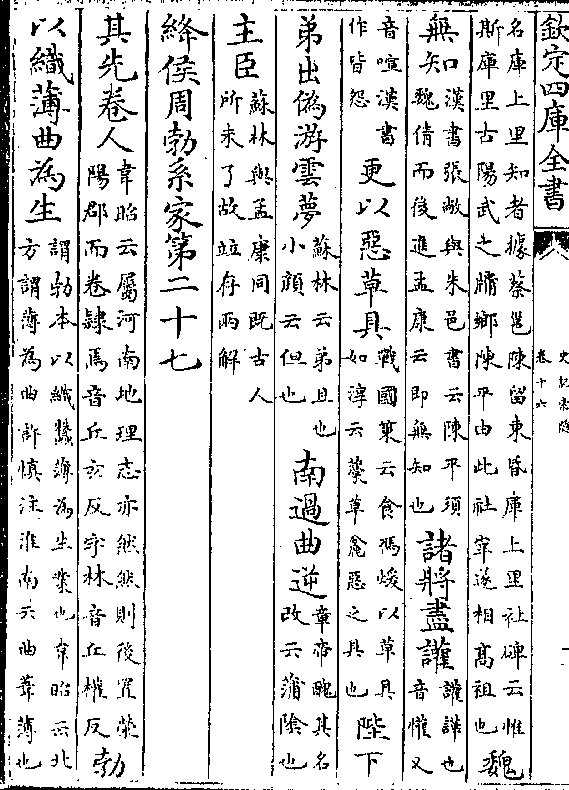 欽定四庫全書
史記索隱
卷十六
名庫上里知者據蔡邕陳留東昏庫上里社碑云惟
斯庫里古陽武之牖鄉陳平由此社宰遂相髙祖也
魏
無知
漢書張敞與朱邑書云陳平須
魏倩而後進孟康云即無知也
諸將盡讙
讙譁也
音懽又
音喧漢書
作皆怨
更以惡草具
戰國策云食馮煖以草具
如淳云藁草麄惡之具也
陛下
弟出偽游雲夢
蘇林云弟且也
小顔云但也
南過曲逆
章帝醜其名
改云蒲陰也
主臣
蘇林與孟康同既古人
所未了故竝存兩解
絳侯周勃系家第二十七
其先卷人
韋昭云屬河南地理志亦然然則後置滎
陽郡而卷隷焉音丘玄反字林音丘權反
勃
以織薄曲為生
謂勃本以織蠶薄為生業也韋昭云北
方謂薄為曲許慎注淮南云曲葦薄也